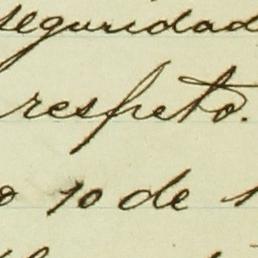 seguridad
respeto.
o 10 de 1